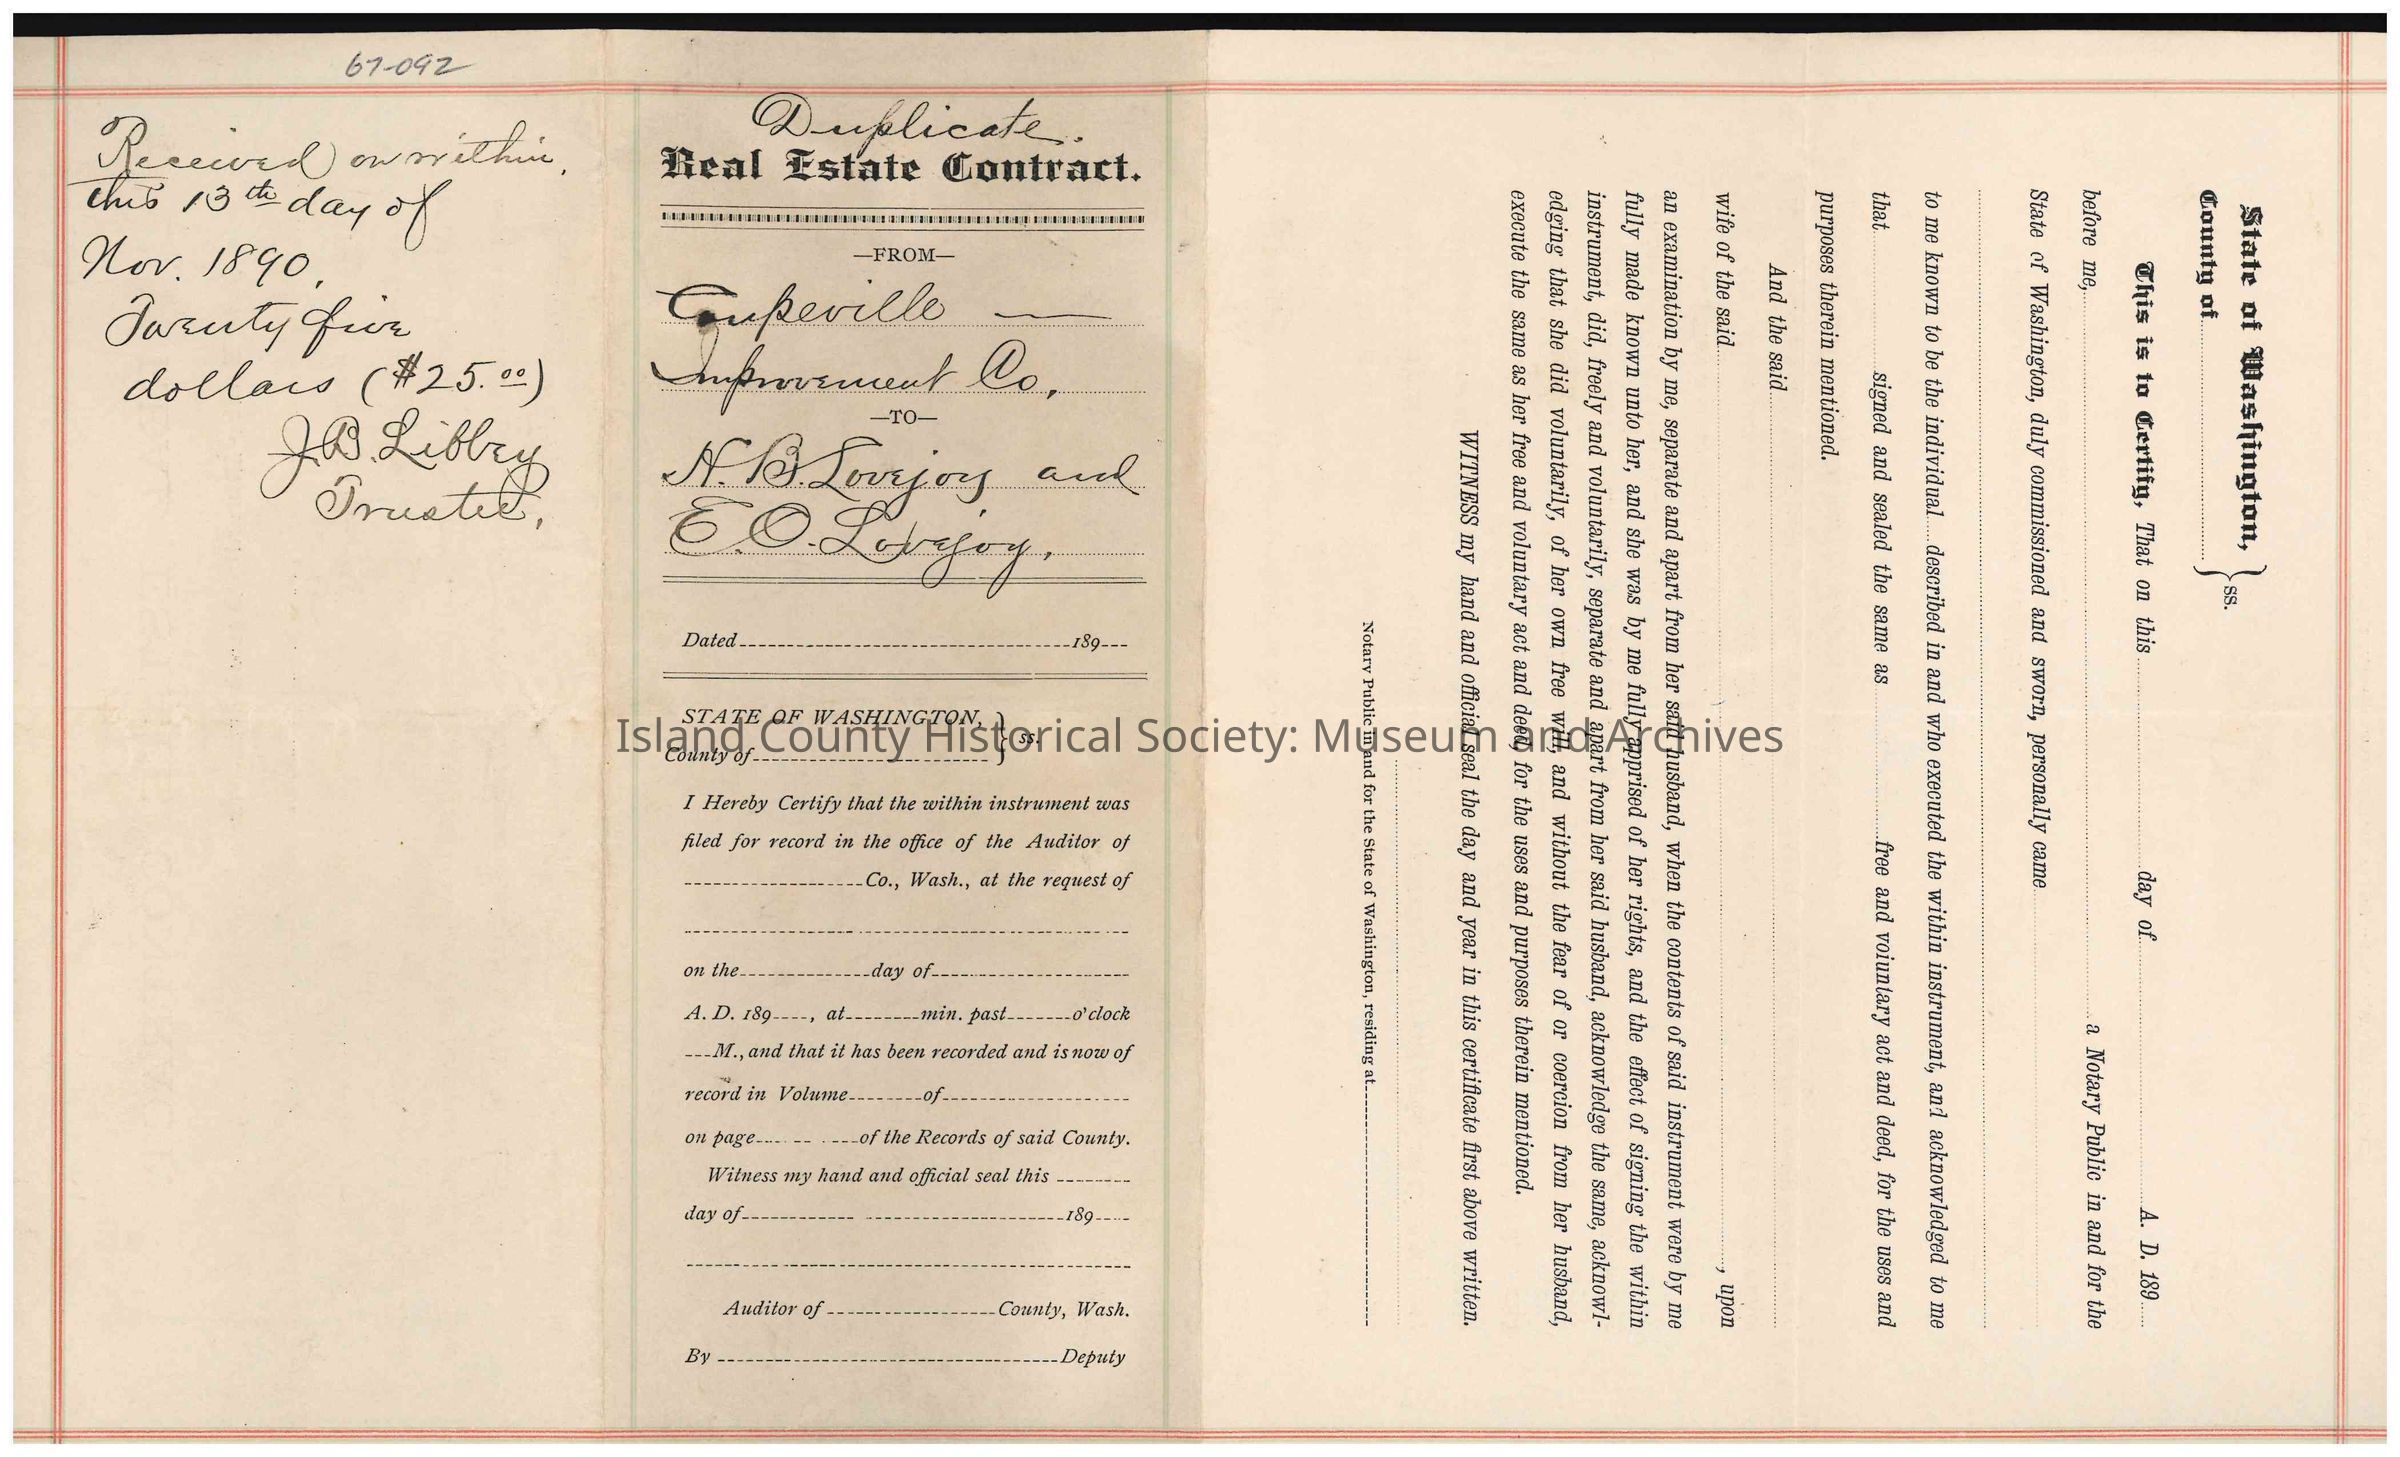 67-092
Received on within,
this 13th day of
Nov. 1890,
Twenty five
dollars ($25.00)
J.B. Libbey
Trustee,
Duplicate.
Real Estate Contract.
—FROM—
Coupeville —
Improvement Co,
—TO—
H. B. Lovejoy and
E. O. Lovejoy,
Dated 189
STATE OF WASHINGTON, } ss.
County of
I Hereby Certify that the within instrument was
filed for record in the office of the Auditor of
Co., Wash., at the request of
on the day of
A. D. 189 , at min. past o'clock
M., and that it has been recorded and is now of
record in Volume of
on page of the Records of said County.
Witness my hand and official seal this
day of 189
Auditor of County, Wash.
By Deputy
State of Washington, } ss.
County of
This is to Certify, That on this day of A. D. 189
before me, a Notary Public in and for the
State of Washington, duly commissioned and sworn, personally came
to me known to be the individual described in and who executed the within instrument, and acknowledged to me
that signed and sealed the same as free and voluntary act and deed, for the uses and
purposes therein mentioned.
And the said
wife of the said , upon
an examination by me, separate and apart from her said husband, when the contents of said instrument were by me
fully made known unto her, and she was by me fully apprised of her rights, and the effect of signing the within
instrument, did, freely and voluntarily, separate and apart from her said husband, acknowledge the same, acknowl-
edging that she did voluntarily, of her own free will, and without the fear of or coercion from her husband,
execute the same as her free and voluntary act and deed, for the uses and purposes therein mentioned.
WITNESS my hand and official seal the day and year in this certificate first above written.
Notary Public in and for the State of Washington, residing at
Island County Historical Society: Museum and Archives